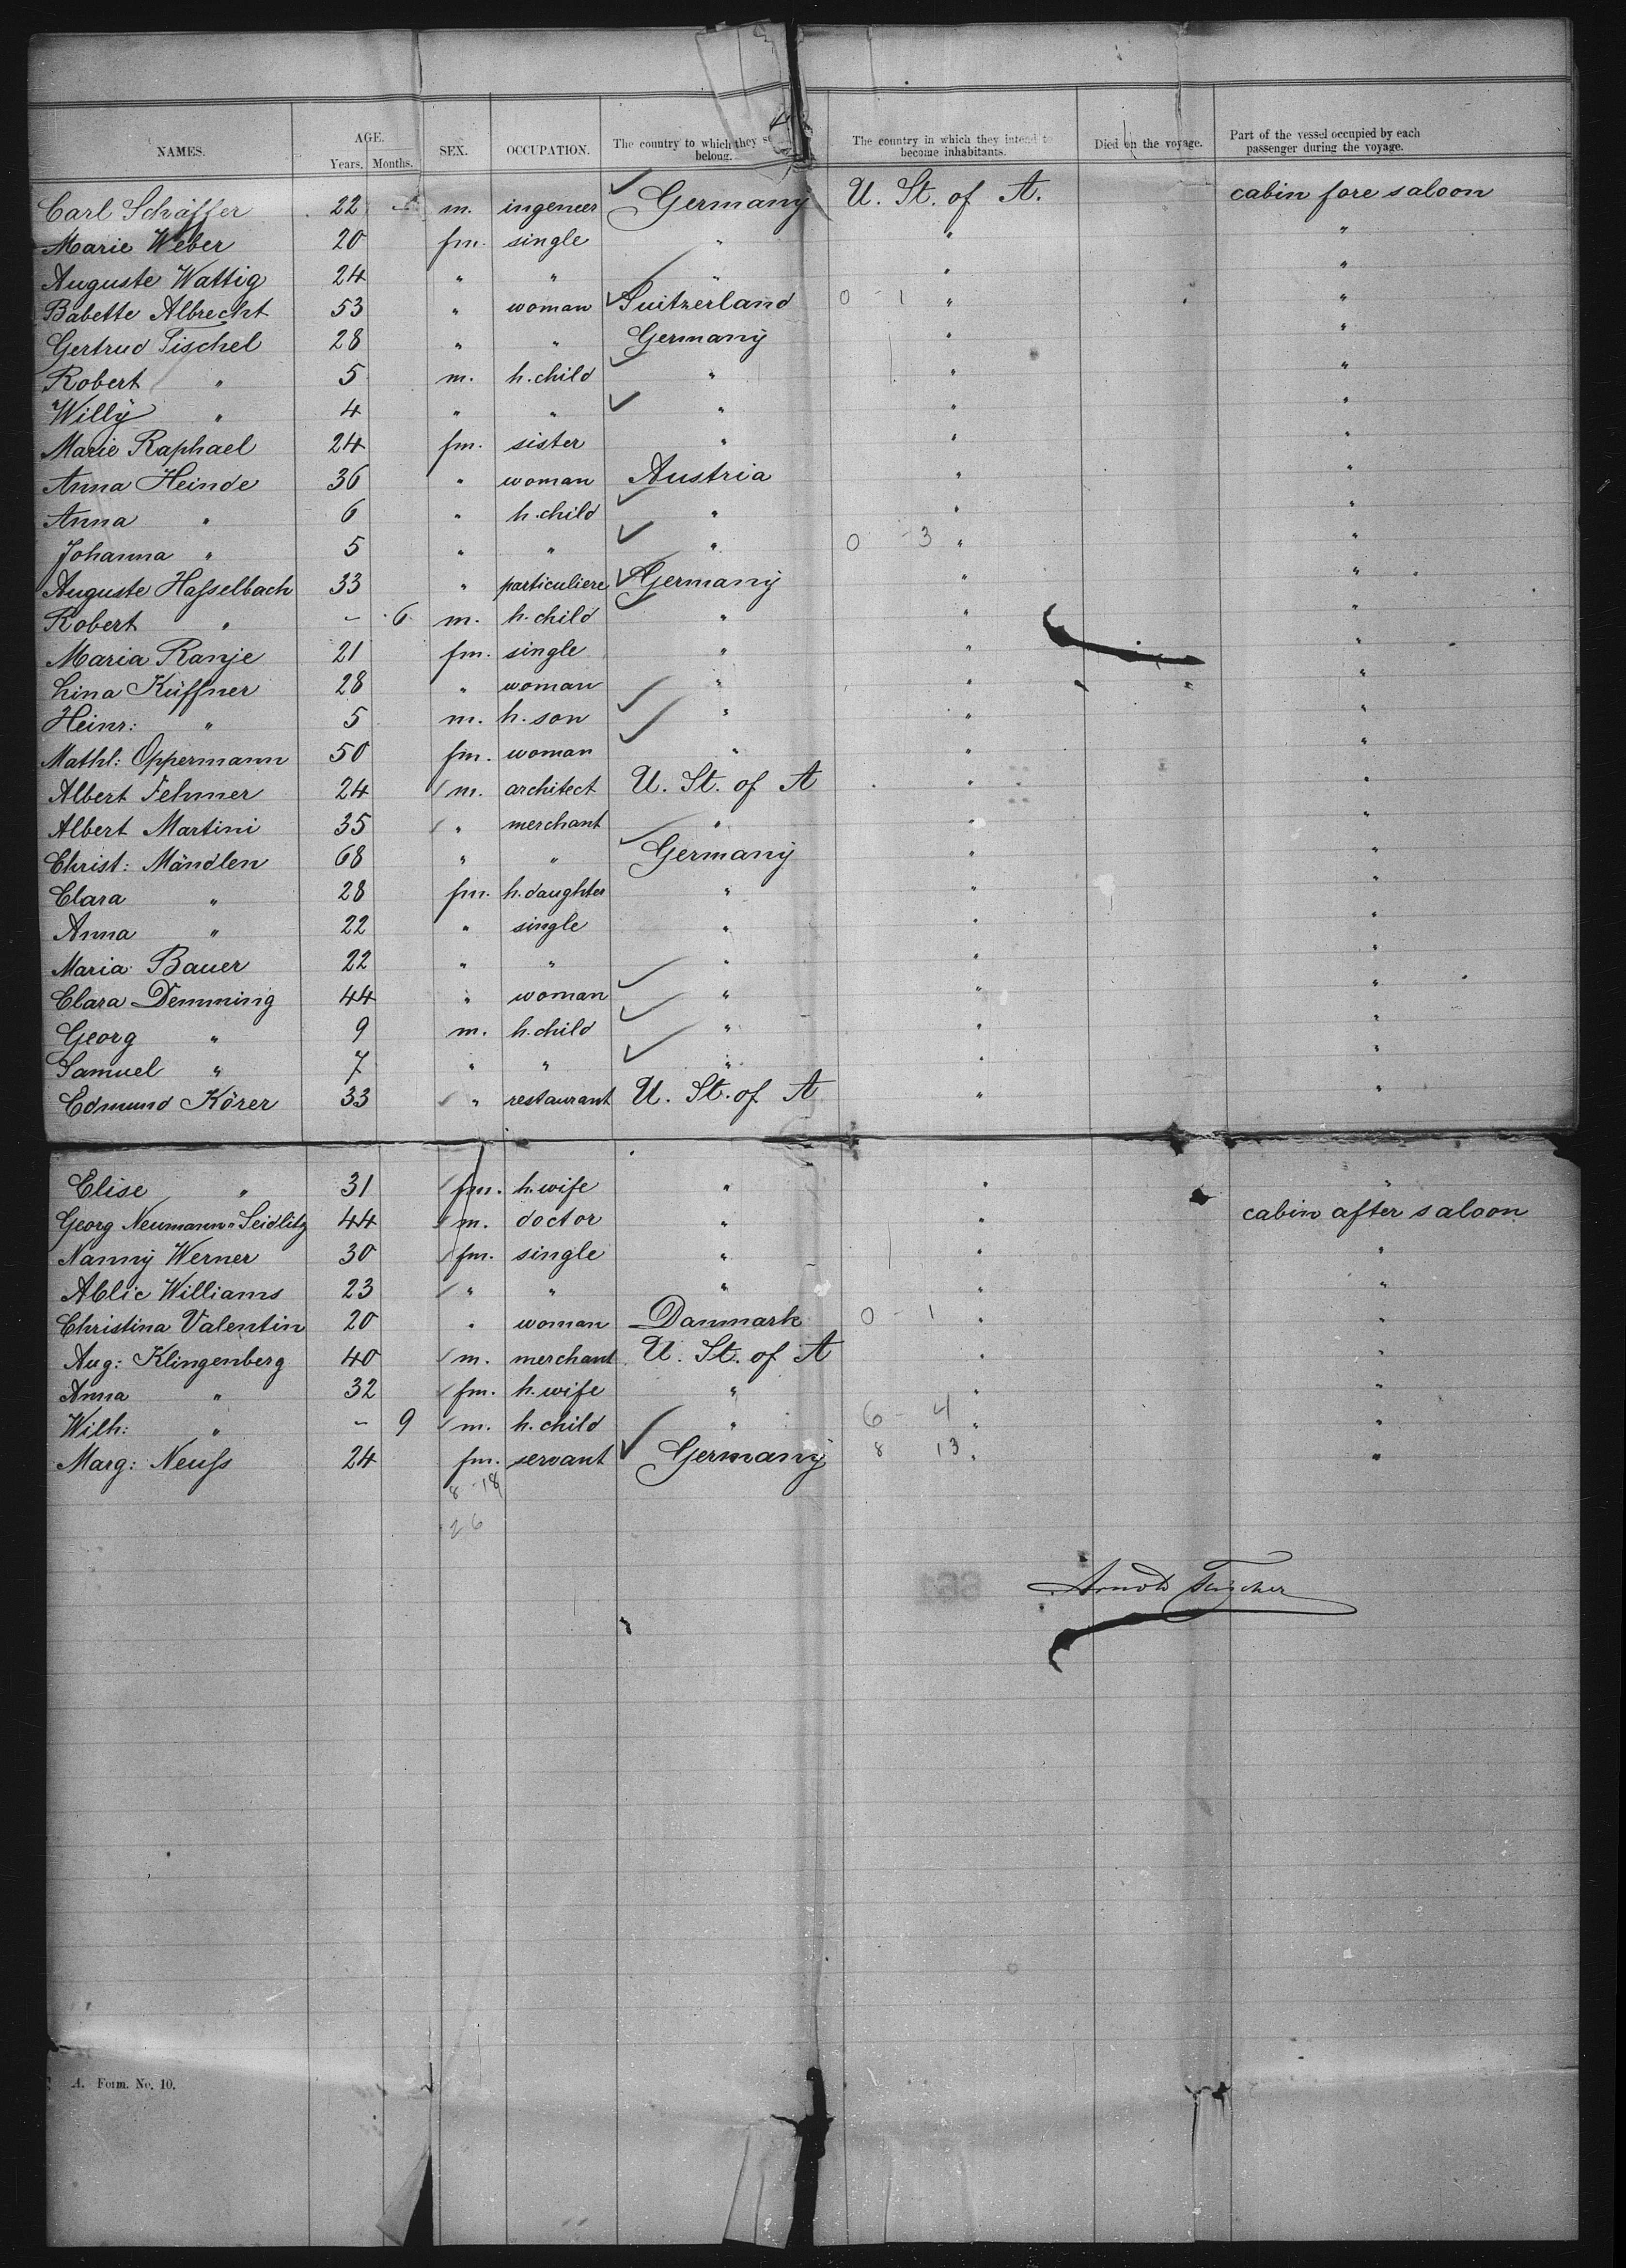 NAMES. AGE. Years. Months. SEX. OCCUPATION. The country to which they belong. The country in which they intend to become inhabitants. Died on the voyage. Part of the vessel occupied by each passenger during the voyage.
Carl Schäffer 22 m. ingeneer Germany U. St. of A. cabin fore saloon
Marie Weber 20 fm. single " " "
Auguste Wattig 24 " " " " "
Babette Albrecht 53 " woman Suitzerland 0 - 1 " "
Gertrud Tischel 28 " " Germany " "
Robert " 5 m. h. child " " "
Willy " 4 " " " " "
Marie Raphael 24 fm. sister " " "
Anna Heinde 36 " woman Austria " "
Anna " 6 " h. child " " "
Johanna " 5 " " " 0 - 3 " "
Auguste Hasselbach 33 " particuliere Germany " "
Robert " - 6 m. h. child " " "
Maria Ranje 21 fm. single " " "
Lina Küffner 28 " woman " " "
Heinr: " 5 m. h. son " " "
Mathl: Oppermann 50 fm. woman " " "
Albert Fehmer 24 m. architect U. St. of A " "
Albert Martini 35 " merchant " " "
Christ: Mändlen 68 " " Germany " "
Clara " 28 fm. h. daughter " " "
Anna " 22 " single " " "
Maria Bauer 22 " " " " "
Clara Demming 44 " woman " " "
Georg " 9 m. h. child " " "
Samuel " 7 " " " " "
Edmund Körer 33 " restaurant U. St. of A " "
Elise " 31 fm. h. wife " " "
Georg Neumann-Seidlitz 44 m. doctor " " cabin after saloon
Nanny Werner 30 fm. single " " "
Ablic Williams 23 " " " " "
Christina Valentin 20 " woman Danmark 0 - 1 " "
Aug: Klingenberg 40 m. merchant U. St. of A " "
Anna " 32 fm. h. wife " " "
Wilh: " - 9 m. h. child " 6 - 4 " "
Marg: Neuss 24 fm. servant Germany 8 13 " "
8 - 18
26
Arnold
A. Form. No. 10.